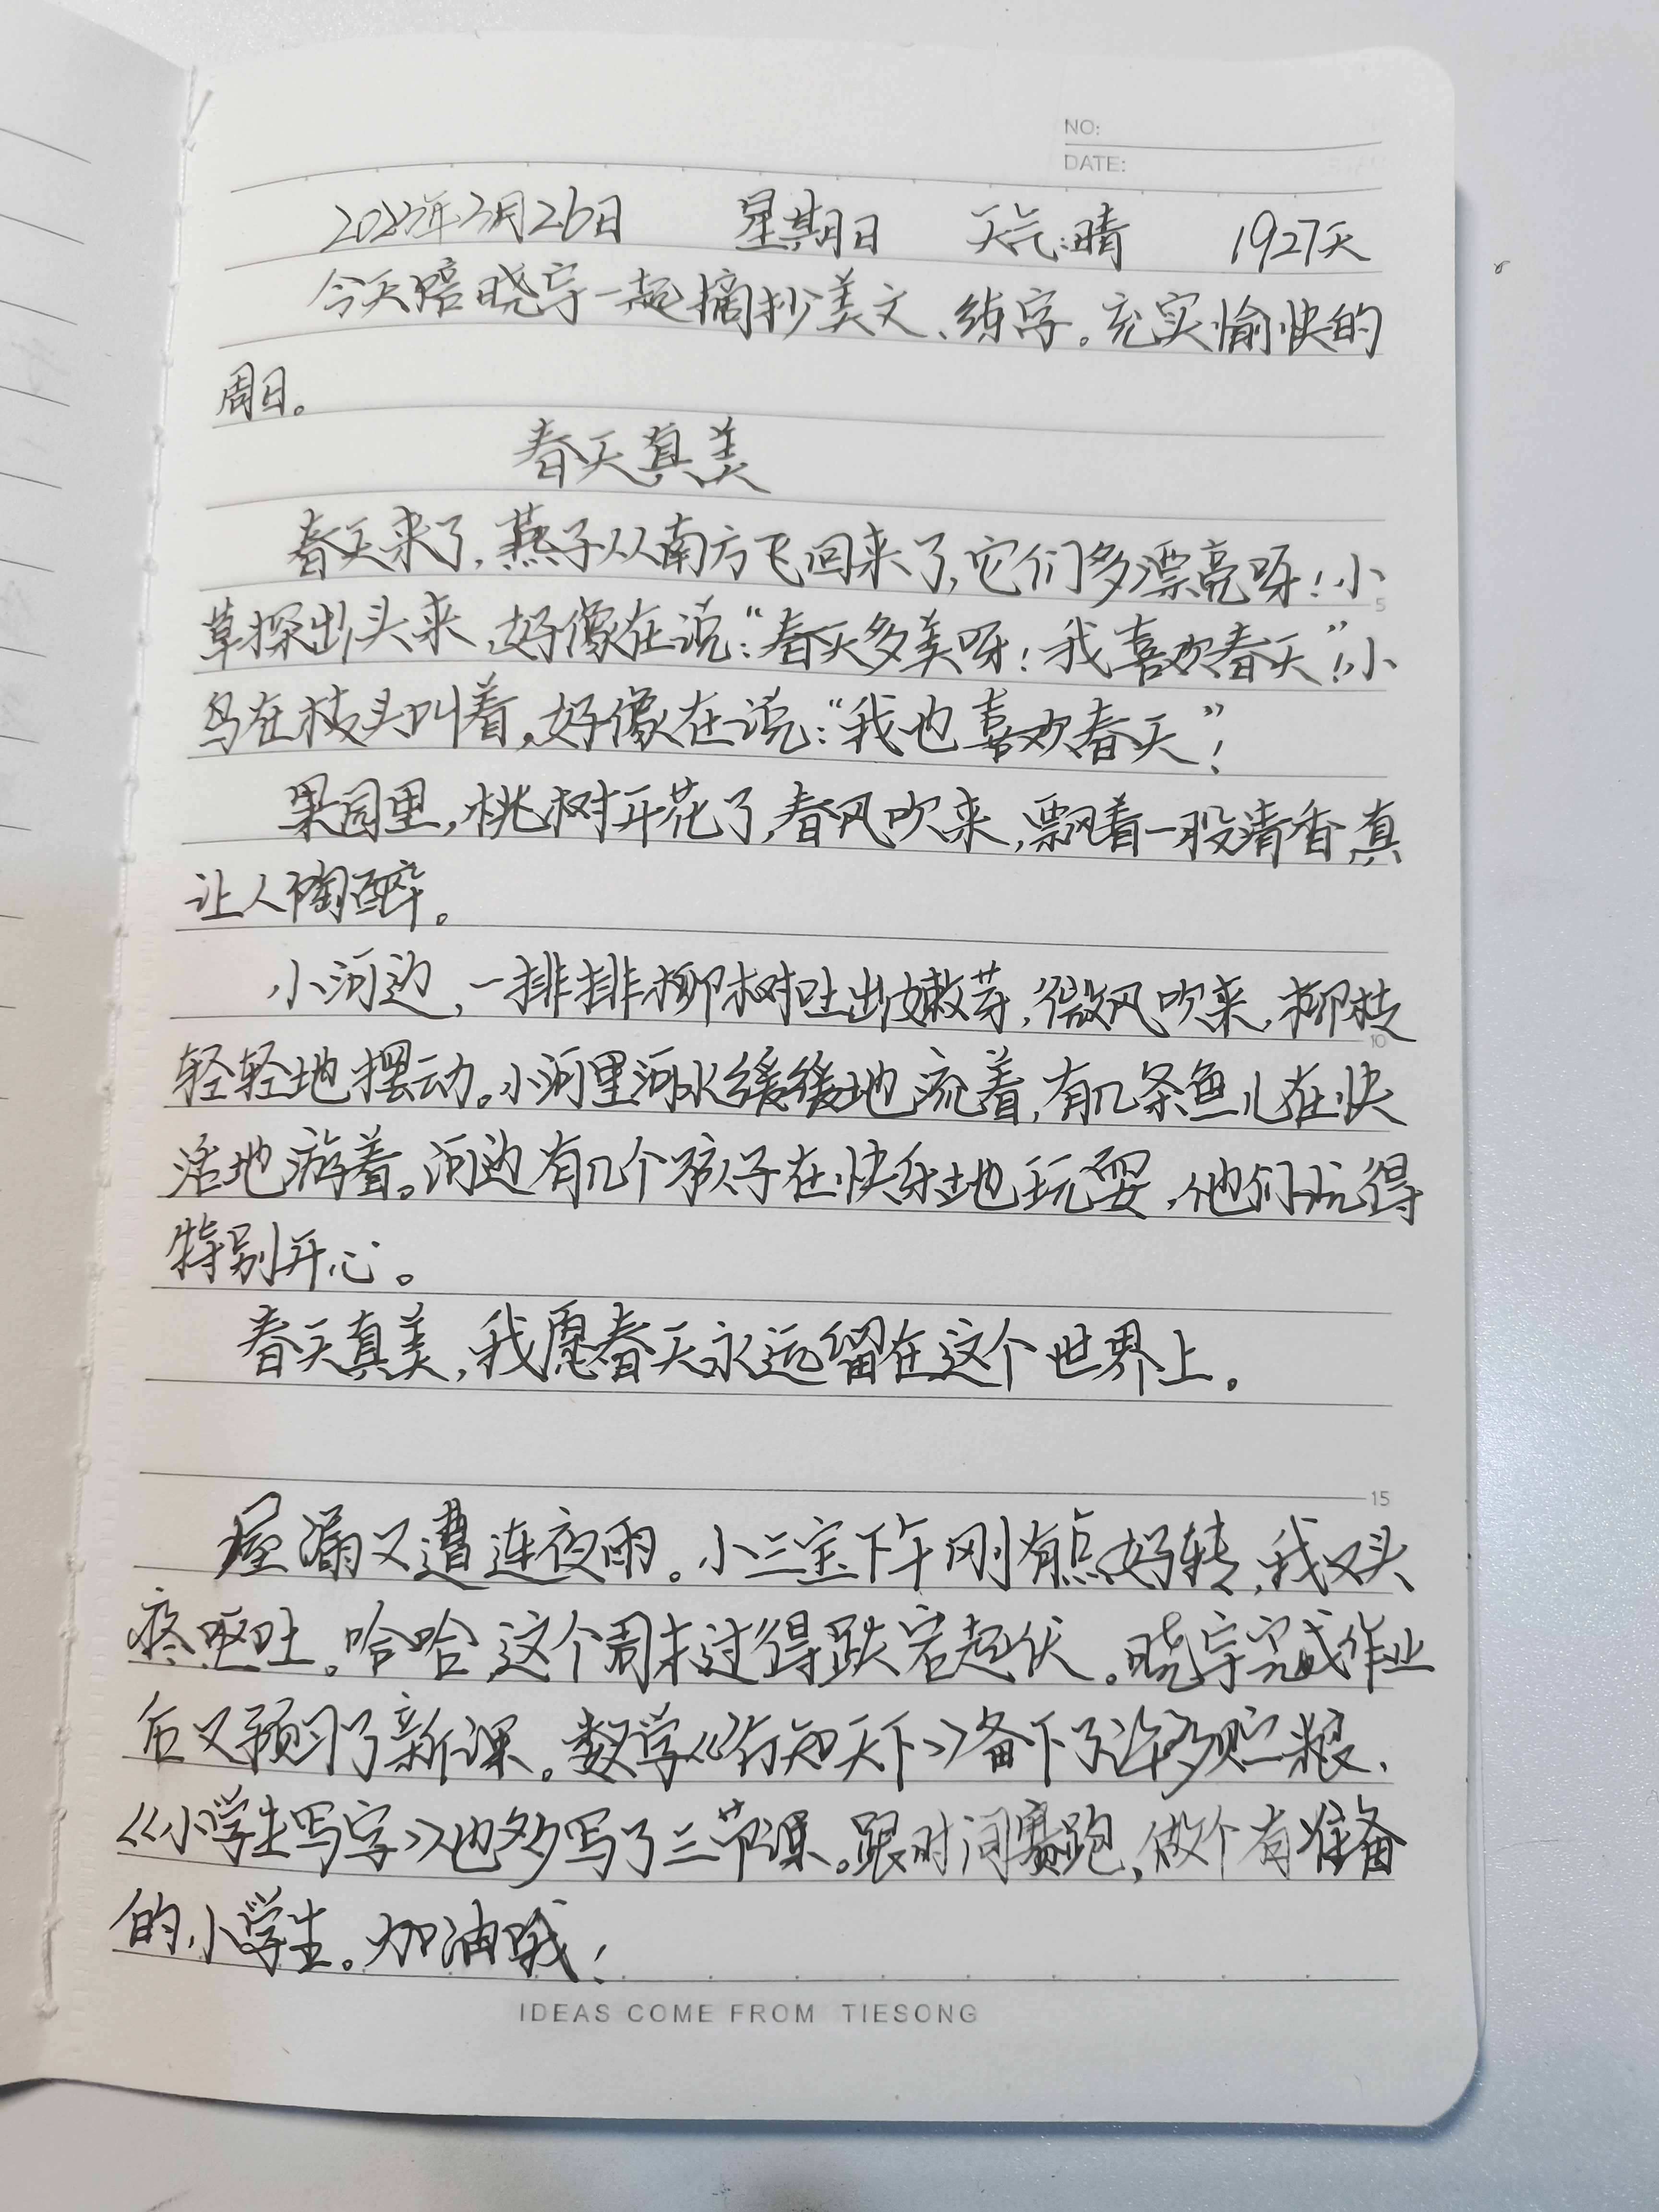 NO:
DATE:
2023年3月26日 星期日 天气:晴 1927天
今天陪晓宇一起摘抄美文、练字。充实愉快的
周日。
春天真美
春天来了,燕子从南方飞回来了,它们多漂亮呀!小
草探出头来,好像在说:“春天多美呀!我喜欢春天”!小
鸟在枝头叫着,好像在说:“我也喜欢春天”!
果园里,桃树开花了,春风吹来,飘着一股清香,真
让人陶醉。
小河边,一排排柳树吐出嫩芽,微风吹来,柳枝
轻轻地摆动。小河里河水缓缓地流着,有几条鱼儿在快
活地游着。河边有几个孩子在快乐地玩耍,他们玩得
特别开心。
春天真美,我愿春天永远留在这个世界上。
屋漏又遭连夜雨。小三宝下午刚有点好转,我又头
疼呕吐。哈哈,这个周末过得跌宕起伏。晓宇完成作业
后又预习了新课。数学《行知天下》备下了许多贮粮、
《小学生写字》也多写了三节课。跟时间赛跑,做个有准备
的小学生。加油哦!
5
10
15
IDEAS COME FROM TIESONG